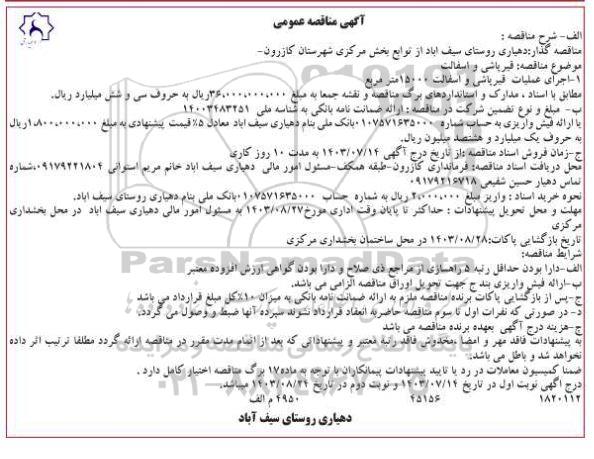 آگهی مناقصه عمومی
الف- شرح مناقصه :
مناقصه گذار:دهیاری روستای سیف اباد از توابع بخش مرکزی شهرستان کازرون-
موضوع مناقصه: قیرپاشی و اسفالت
۱-اجرای عملیات قیرپاشی و اسفالت ۱۵۰۰۰متر مربع
مطابق با اسناد ، مدارک و استانداردهای برگ مناقصه و نقشه جمعا به مبلغ ۳۶،۰۰۰،۰۰۰،۰۰۰ریال به حروف سی و شش میلیارد ریال.
ب- مبلغ و نوع تضمین شرکت در مناقصه : ارائه ضمانت نامه بانکی به شناسه ملی ۱۴۰۰۳۴۸۳۲۵۱
یا ارائه فیش واریزی به حساب شماره ۰۱۰۷۵۷۱۶۳۵۰۰۰بانک ملی بنام دهیاری سیف اباد معادل ۵٪قیمت پیشنهادی به مبلغ ۱،۸۰۰،۰۰۰،۰۰۰ریال
به حروف یک میلیارد و هشتصد میلیون ریال.
ج-زمان فروش اسناد مناقصه :از تاریخ درج آگهی ۱۴۰۳/۰۷/۱۴ به مدت ۱۰ روز کاری
محل دریافت اسناد مناقصه: فرمانداری کازرون-طبقه همکف-مسئول امور مالی دهیاری سیف اباد خانم مریم استوانی ۰۹۱۷۹۲۲۱۸۰۴،شماره
تماس دهیار حسین شفیعی ۰۹۱۷۹۲۱۶۷۱۸
نحوه خرید اسناد : واریز مبلغ ۲،۰۰۰،۰۰۰ ریال به شماره حساب ۰۱۰۷۵۷۱۶۳۵۰۰۰بانک ملی بنام دهیاری روستای سیف اباد.
مهلت و محل تحویل پیشنهادات : حداکثر تا پایان وقت اداری مورخ۱۴۰۳/۰۸/۲۷ به مسئول امور مالی دهیاری سیف اباد در محل بخشداری
مرکزی
تاریخ بازگشایی پاکات:۱۴۰۳/۰۸/۲۸ در محل ساختمان بخشداری مرکزی
شرایط مناقصه:
الف-دارا بودن حداقل رتبه ۵ راهسازی از مراجع ذی صلاح و دارا بودن گواهی ارزش افزوده معتبر
ب-ارائه فیش واریزی بند ج جهت تحویل اوراق مناقصه الزامی می باشد.
ج-پس از بازگشایی پاکات برنده مناقصه ملزم به ارائه ضمانت نامه بانکی به میزان ۱۰٪کل مبلغ قرارداد می باشد
د- در صورتی که نفرات اول تا سوم مناقصه حاضربه انعقاد قرارداد نشوند سپرده آنها ضبط و وصول می گردد.
ج-هزینه درج آگهی بعهده برنده مناقصه می باشد
به پیشنهادات فاقد مهر و امضا ،مخدوش فاقد رتبه معتبر و پیشنهاداتی که بعد از اتمام مدت مقرر در مناقصه ارائه گردد مطلقا ترتیب اثر داده
نخواهد شد و باطل می باشد.
ضمنا کمیسیون معاملات در رد یا تایید پیشنهادات پیمانکاران با توجه به ماده۱۷ برگ مناقصه اختیار کامل دارد .
درج اگهی نوبت اول در تاریخ ۱۴۰۳/۰۷/۱۴ و نوبت دوم در تاریخ ۱۴۰۳/۰۸/۲۴ میباشد.
۱۸۲۰۱۱۲ ۴۵۱۵۶ ۴۹۵۰ م الف
دهیاری روستای سیف آباد
ParsNamadData